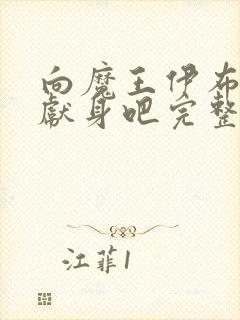 向魔王伊布
献身吧完整
江菲1